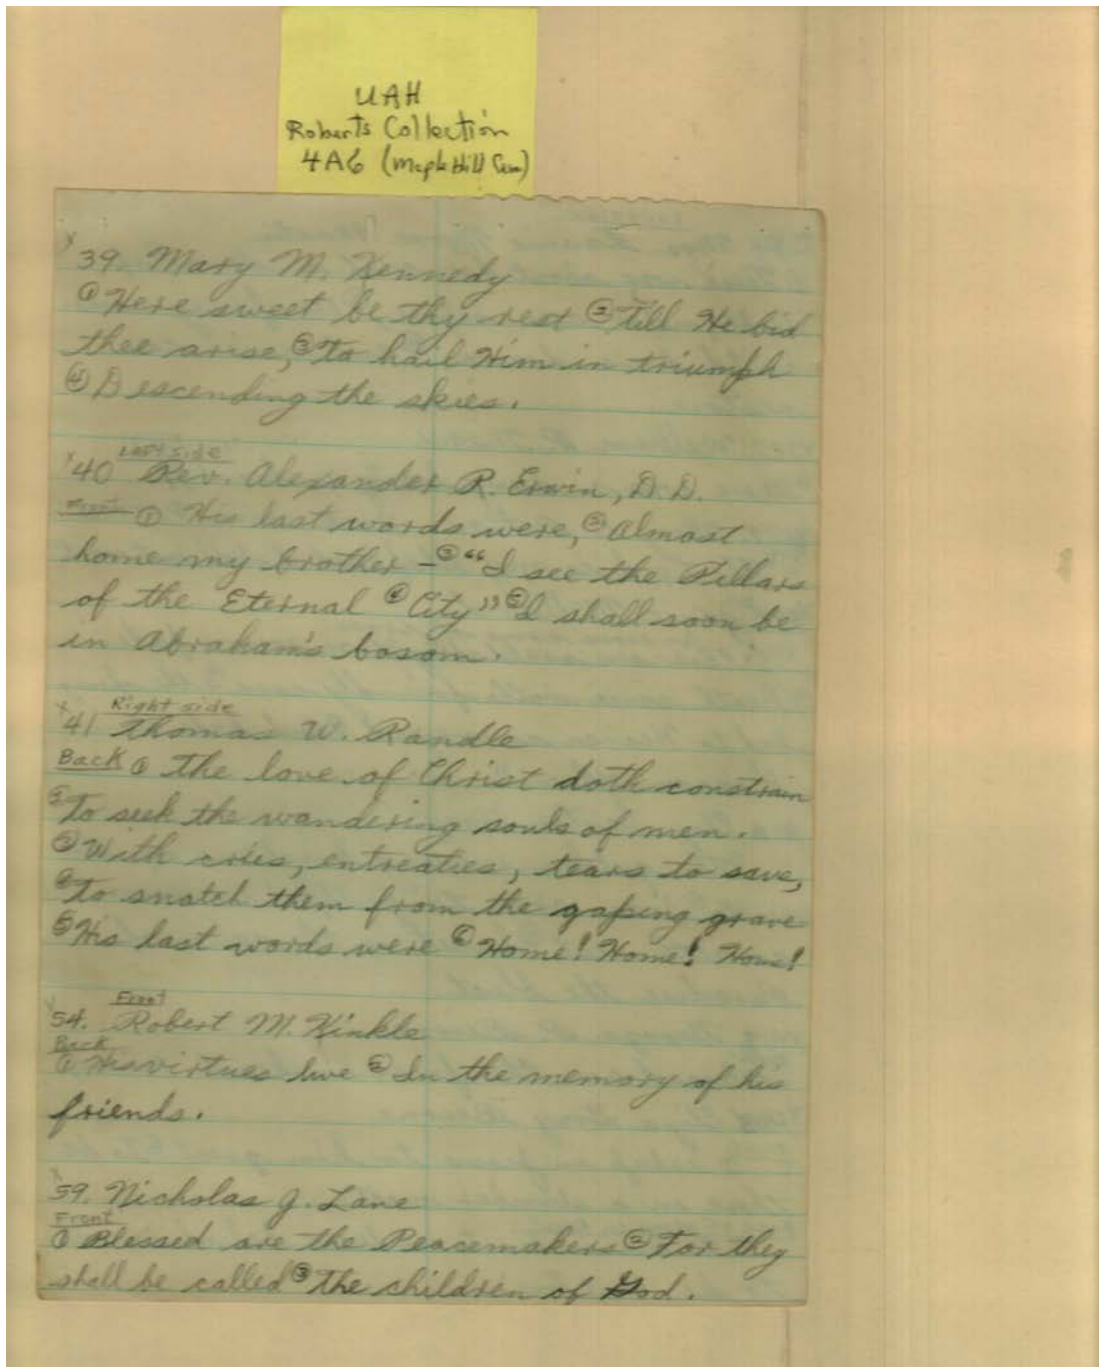 UAH
Roberts Collection
4A6 (Maple Hill Cem)
x
39. Mary M. Kennedy
① Here sweet be thy rest ② Till He bid
thee arise, ③ To hail Him in triumph
④ Descending the skies.
Left side
x 40 Rev. Alexander R. Erwin, D.D.
Front ① His last words were, ② Almost
home my brother – ③ "I see the Pillars
of the Eternal ④ City" ⑤ I shall soon be
in Abraham's bosom.
x Right side
41 Thomas W. Randle
Back ① The love of Christ doth constrain
② To seek the wandering souls of men.
③ With cries, entreaties, tears to save,
④ To snatch them from the gaping grave
⑤ His last words were ⑥ Home! Home! Home!
Front
54. Robert M. Hinkle
Back
① His virtues live ② In the memory of his
friends.
x
59. Nicholas J. Lane
Front
① Blessed are the Peacemakers ② For they
shall be called ③ The children of God.